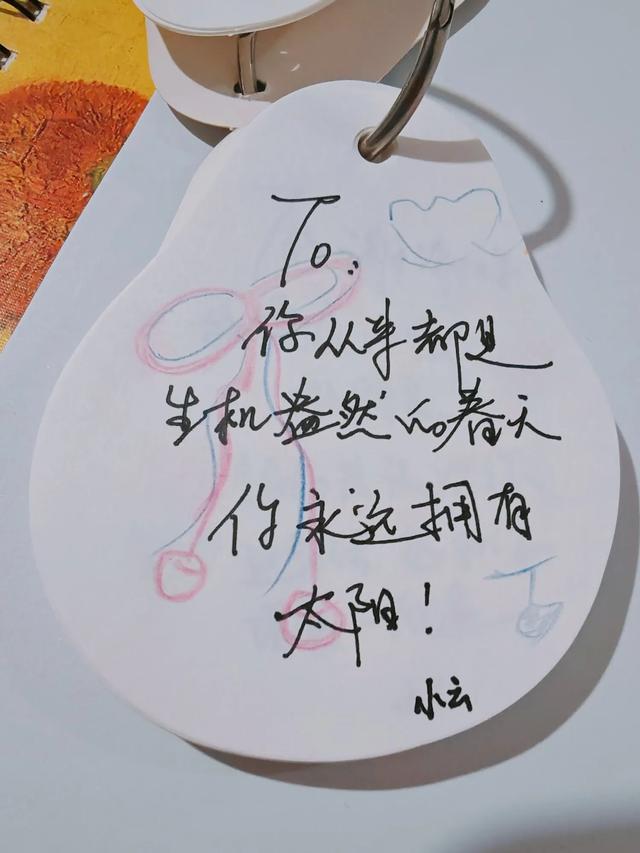 To:
你从来都是
生机盎然的春天
你永远拥有
太阳!
小云